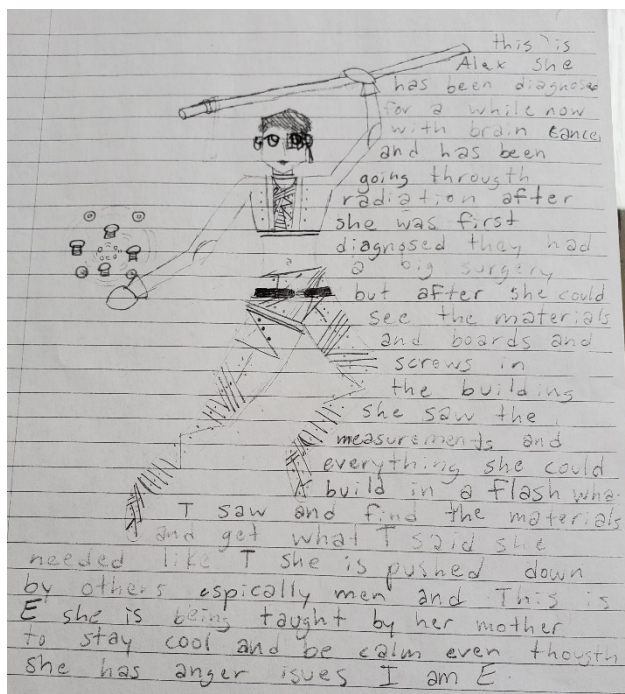 this is
Alex she
has been diagnosed
for a while now
with brain cance
and has been
going througth
radiation after
she was first
diagnosed they had
a big surgery
but after she could
see the materials
and boards and
screws in
the building
she saw the
measurements and
everything she could
build in a flash wha
T saw and find the materials
and get what T said she
needed like T she is pushed down
by others espically men and This is
E she is being taught by her mother
to stay cool and be calm even thougth
she has anger isues I am E.